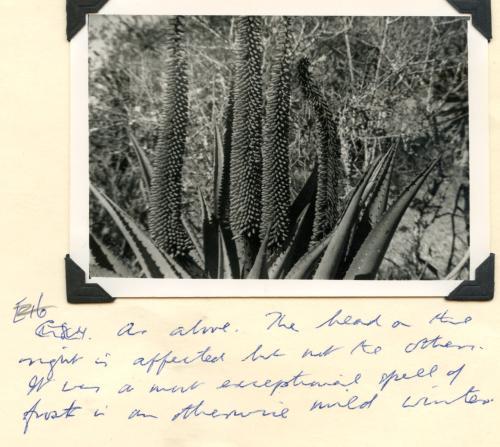 E16
As above. The head on the
right is affected but not the others.
It was a most exceptional spell of
frost in an otherwise mild winter.